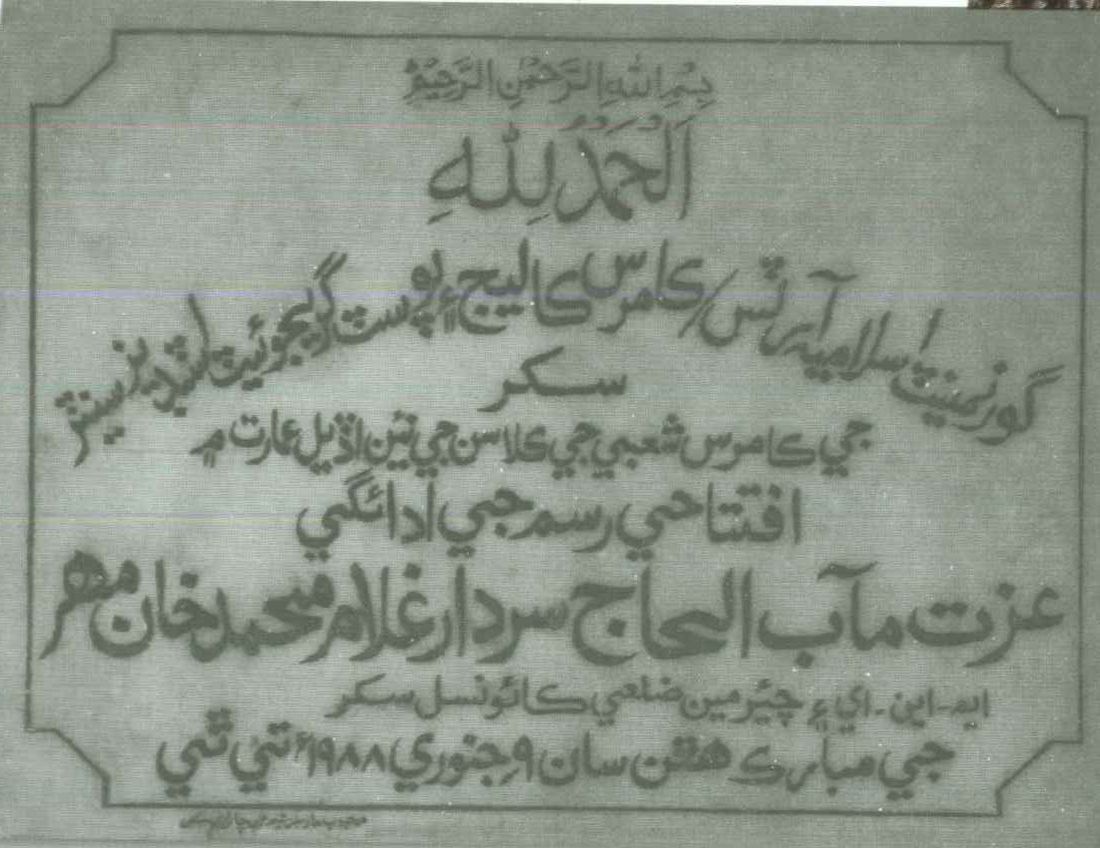 بِسْمِ اللهِ الرَّحْمٰنِ الرَّحِيْمِ
اَلْحَمْدُ لِلّٰهِ
گورنمينٽ اسلاميه آرٽس/ڪامرس ڪاليج ۽ پوسٽ گريجوئيٽ اسٽڊيز سينٽر
سکر
جي ڪامرس شعبي جي ڪلاسن جي نئين اڏيل عمارت ۾
افتتاحي رسم جي ادائگي
عزت مآب الحاج سردار غلام محمد خان مهر
ايم-اين-اي ۽ چيئرمين ضلعي ڪائونسل سکر
جي مبارڪ هٿن سان ۹ جنوري ۱۹۸۸ع تي ٿي